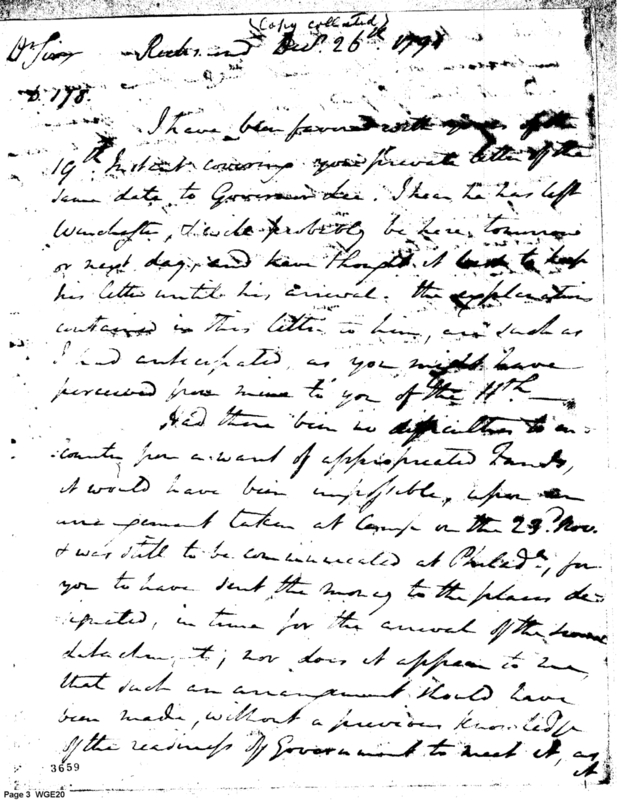 (Copy collated)
Dr Sir Richmond Decr. 26th 1794
D. 178.
I have been favored with yours of the
19th Instant covering your private letter of the
same date to Governor Lee. I hear he has left
Winchester, & will probably be here, tomorrow
or next day, and have thought it best to keep
his letter until his arrival. The explanations
contained in this letter to him, are such as
I had anticipated, as you might have
perceived from mine to you of the 11th
Had there been no difficulties to en-
counter from a want of appropriated Funds,
it would have been impossible, upon an
arrangement taken at Camp on the 23d. Nov.
& was still to be communicated at Philada., for
you to have sent the money to the places de-
signated, in time for the arrival of the several
detachments; nor does it appear to me,
that such an arrangement should have
been made, without a previous knowledge
of the readiness of Government to meet it, as
it
3659
Page 3 WGE20